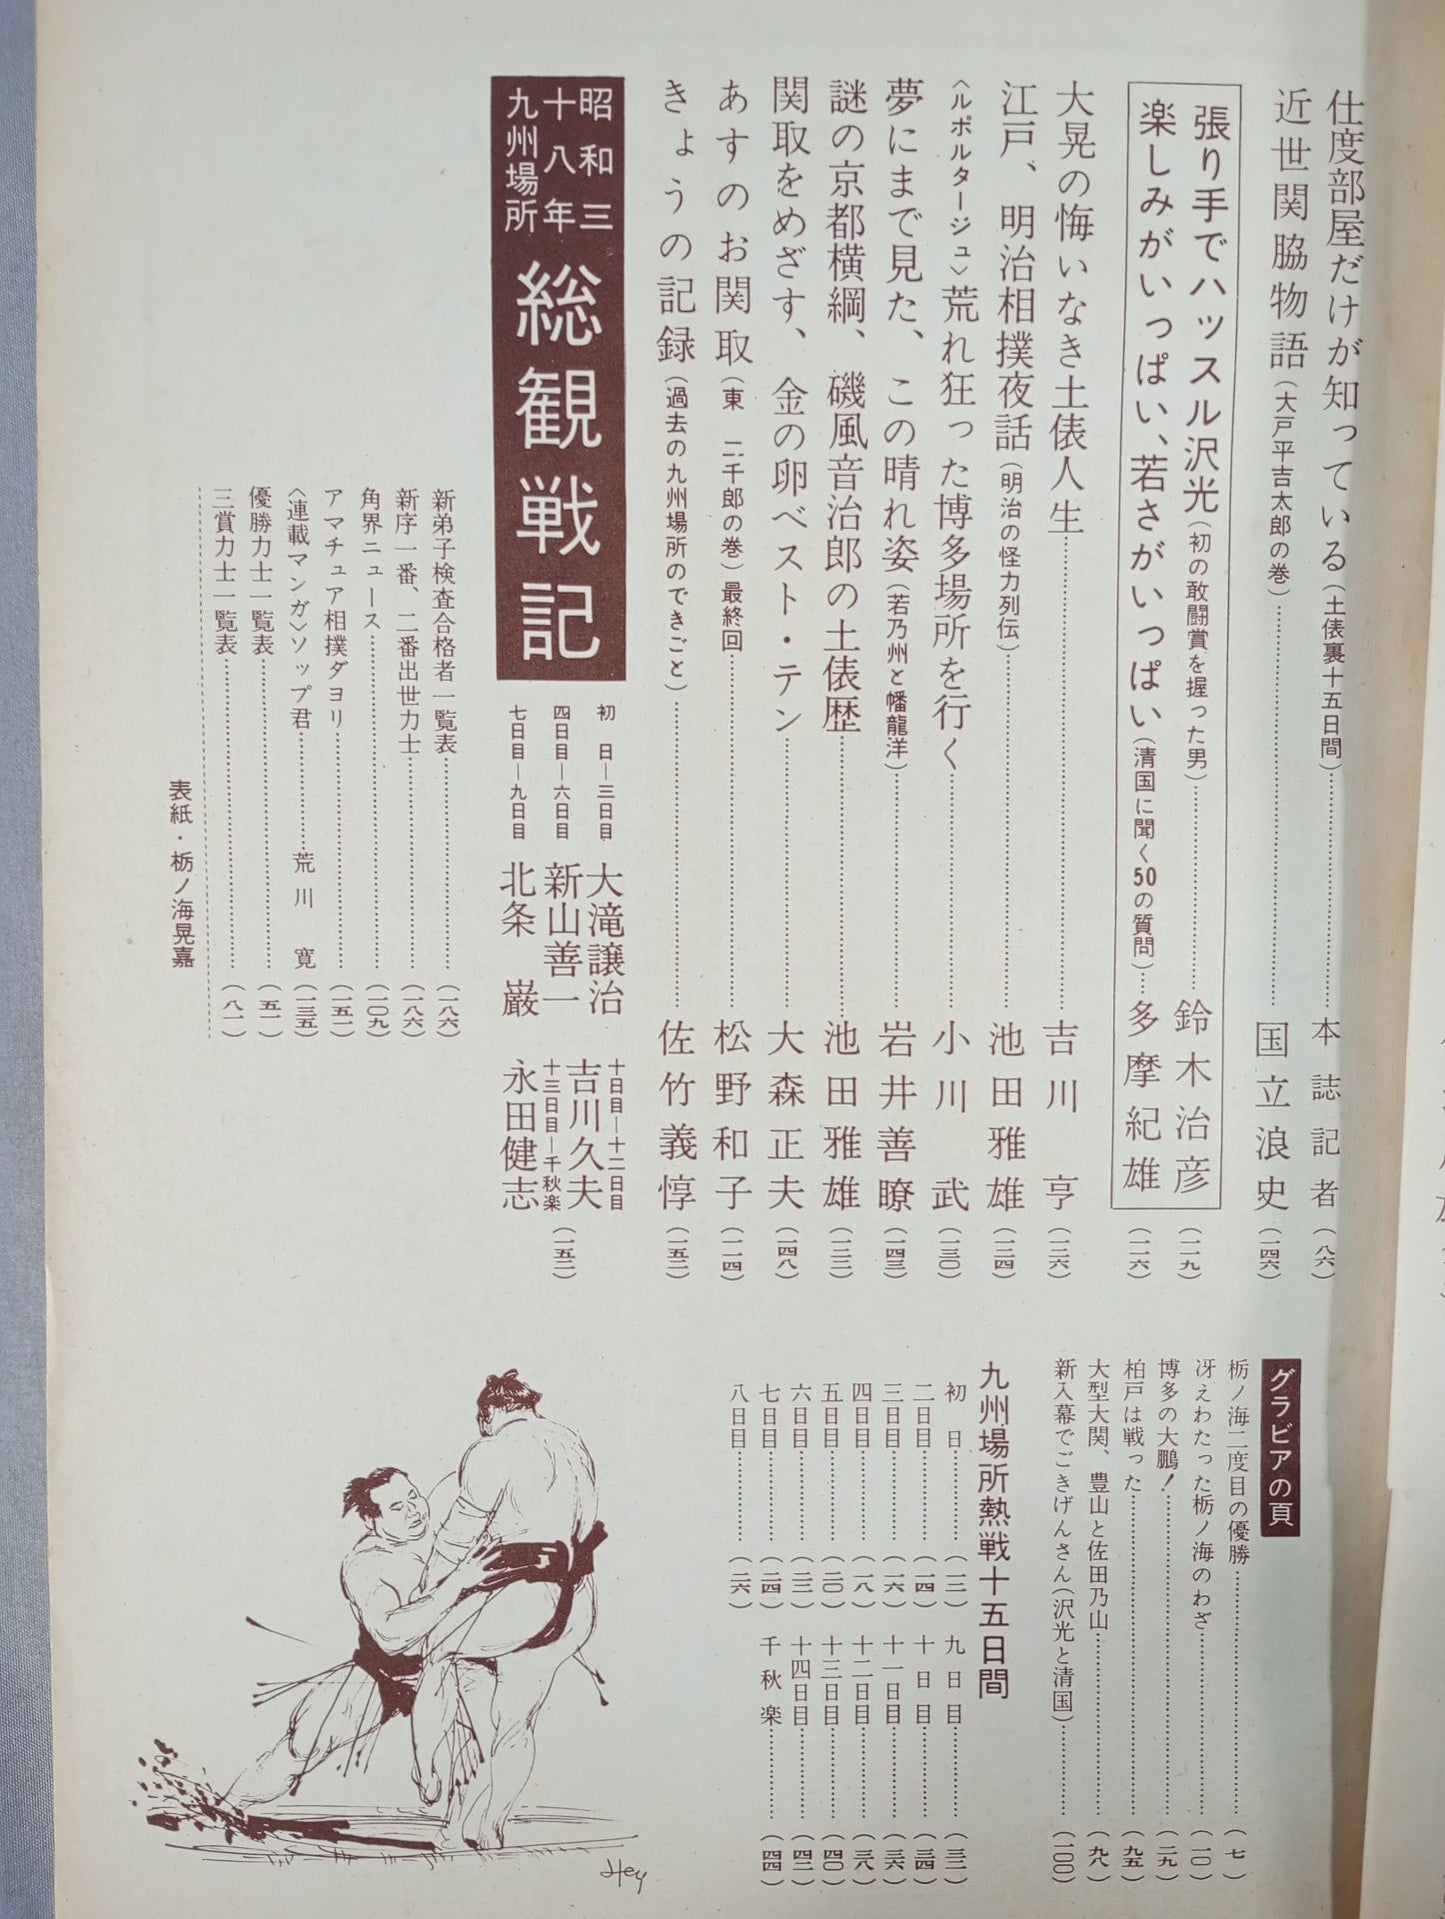 仕度部屋だけが知っている(土俵裏十五日間)……本誌記者(八六)
近世関脇物語(大戸平吉太郎の巻)……国立浪史(一四六)
張り手でハッスル沢光(初の敢闘賞を握った男)……鈴木治彦(一一九)
楽しみがいっぱい、若さがいっぱい(清国に聞く50の質問)…多摩紀雄(一一六)
大晃の悔いなき土俵人生……吉川亨(一三六)
江戸、明治相撲夜話(明治の怪力列伝)……池田雅雄(一三四)
〈ルポルタージュ〉荒れ狂った博多場所を行く……小川武(一三〇)
夢にまで見た、この晴れ姿(若乃州と幡龍洋)……岩井善瞭(一四三)
謎の京都横綱、磯風音治郎の土俵歴……池田雅雄(一三二)
関取をめざす、金の卵ベスト・テン……大森正夫(一四八)
あすのお関取(東 二千郎の巻)最終回……松野和子(一一四)
きょうの記録(過去の九州場所のできごと)……佐竹義惇(一五二)
昭和三十八年九州場所 総観戦記
初日―三日目 大滝譲治
四日目―六日目 新山善一
七日目―九日目 北条 巌
十日目―十二日目 吉川久夫
十三日目―千秋楽 永田健志
(一五二)
新弟子検査合格者一覧表……(一八六)
新序一番、二番出世力士……(一八六)
角界ニュース……(一〇九)
アマチュア相撲ダヨリ……(一五一)
〈連載マンガ〉ソップ君……荒川 寛(一三五)
優勝力士一覧表……(五一)
三賞力士一覧表……(八一)
表紙・栃ノ海晃嘉
グラビアの頁
栃ノ海二度目の優勝……(七)
冴えわたった栃ノ海のわざ……(一〇)
博多の大鵬!……(二九)
柏戸は戦った……(九五)
大型大関、豊山と佐田乃山……(九八)
新入幕でごきげんさん(沢光と清国)……(一〇〇)
九州場所熱戦十五日間
初日……(一三)
二日目……(一四)
三日目……(一六)
四日目……(一八)
五日目……(二〇)
六日目……(二二)
七日目……(二四)
八日目……(二六)
九日目……(三二)
十日目……(三四)
十一日目……(三六)
十二日目……(三八)
十三日目……(四〇)
十四日目……(四二)
千秋楽……(四四)
Hey